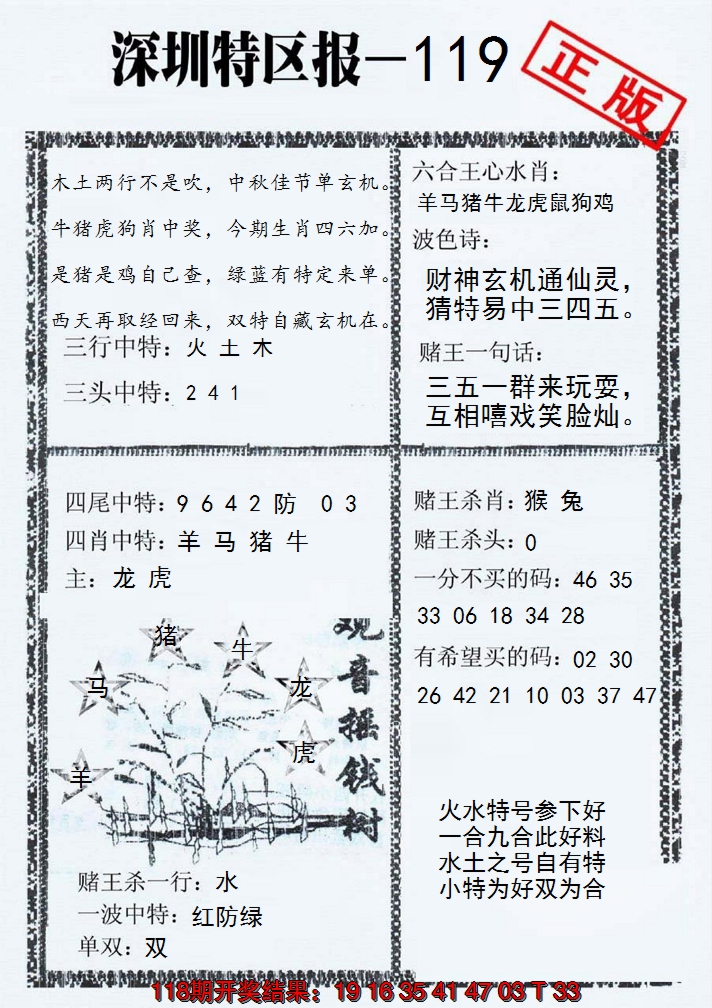 深圳特区报—119
正版
木土两行不是吹，中秋佳节单玄机。
牛猪虎狗肖中奖，今期生肖四六加。
是猪是鸡自己查，绿蓝有特定来单。
西天再取经回来，双特自藏玄机在。
三行中特：火 土 木
三头中特：2 4 1
六合王心水肖：
羊马猪牛龙虎鼠狗鸡
波色诗：
财神玄机通仙灵，
猜特易中三四五。
赌王一句话：
三五一群来玩耍，
互相嘻戏笑脸灿。
四尾中特：9 6 4 2 防 0 3
四肖中特：羊 马 猪 牛
主：龙 虎
猪
牛
马
龙
虎
羊
观音摇钱树
赌王杀一行：水
一波中特：红防绿
单双：双
赌王杀肖：猴 兔
赌王杀头：0
一分不买的码：46 35
33 06 18 34 28
有希望买的码：02 30
26 42 21 10 03 37 47
火水特号参下好
一合九合此好料
水土之号自有特
小特为好双为合
118期开奖结果：19 16 35 41 47 03 T 33